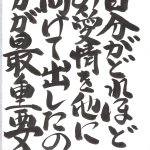 自分がどれほど
の愛情を他に
向けて出したの
かが最重要